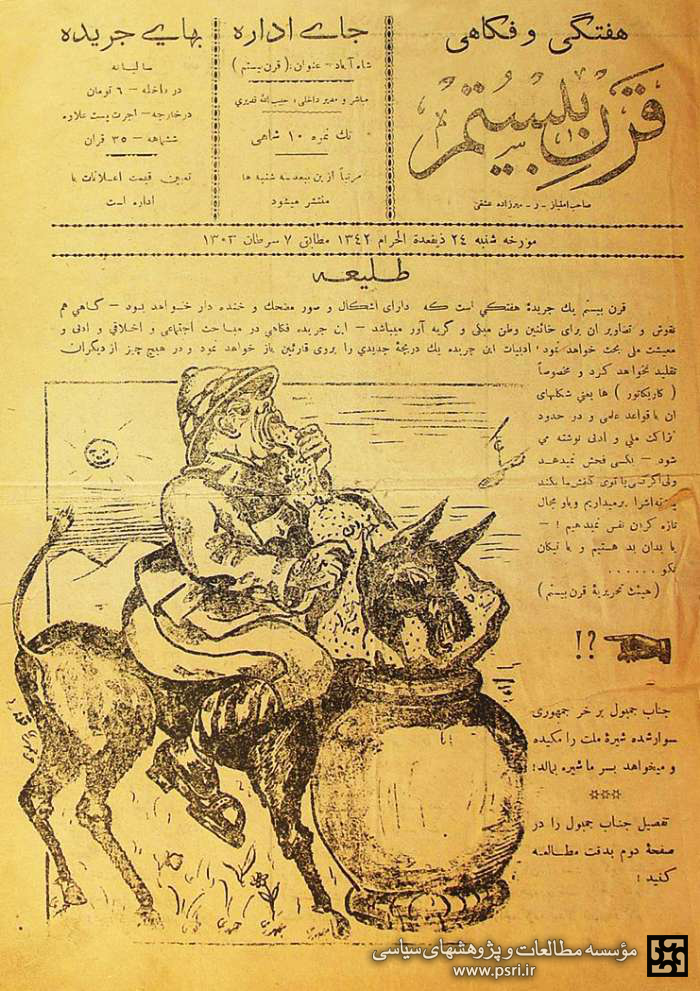 هفتگی و فکاهی
قرن بیستم
صاحب امتیاز - ر - میرزاده عشقی
جاے اداره
شاه آباد - عنوان: ( قرن بیستم )
مباشر و مدیر داخلی، حبیب الله قدیری
تك نمره ۱۰ شاهی
مرتباً از این ببعد سه شنبه ها
منتشر میشود
بهاے جریده
سالیانه
در داخله - ۶ تومان
در خارجه - اجرت پست علاوه
ششماهه - ۳۵ قران
تعیین قیمت اعلانات با
اداره است
مورخه شنبه ۲۴ ذیقعدة الحرام ۱۳۴۲ مطابق ۷ سرطان ۱۳۰۳
طلیعه
قرن بیستم یك جریدهٔ هفتگی است که دارای اشکال و صور مضحك و خنده دار خواهد بود - گاهی هم
نقوش و تصاویر ان برای خائنین وطن مبکی و گریه آور میباشد - این جریده فکاهی در مباحث اجتماعی و اخلاقی و ادبی و
معیشت ملی بحث خواهد نمود، ادبیات این جریده یك دریچهٔ جدیدی را بروی قارئین باز خواهد نمود و در هیچ چیز از دیگران
تقلید نخواهد کرد و مخصوصاً
( کاریکاتور ) ها یعنی شکلهای
ان با قواعد علمی و در حدود
نزاکت ملی و ادبی نوشته می
شود - بکسی فحش نمیدهد
ولی اگر کسی پا توی کفش ما بکند
را برمیداریم و باو مجال
تازه کردن نفس نمیدهیم ! -
با بدان بد هستیم و با نیکان
نکو ......
( هیئت تحریریهٔ قرن بیستم )
!?
جناب جمبول بر خر جمهوری
سوار شده شیرهٔ ملت را مکیده
و میخواهد بسر ما شیره بمالد!
***
تفصیل جناب جمبول را در
صفحهٔ دوم بدقت مطالعه
کنید !
مؤسسه مطالعات و پژوهشهای سیاسی
www.psri.ir